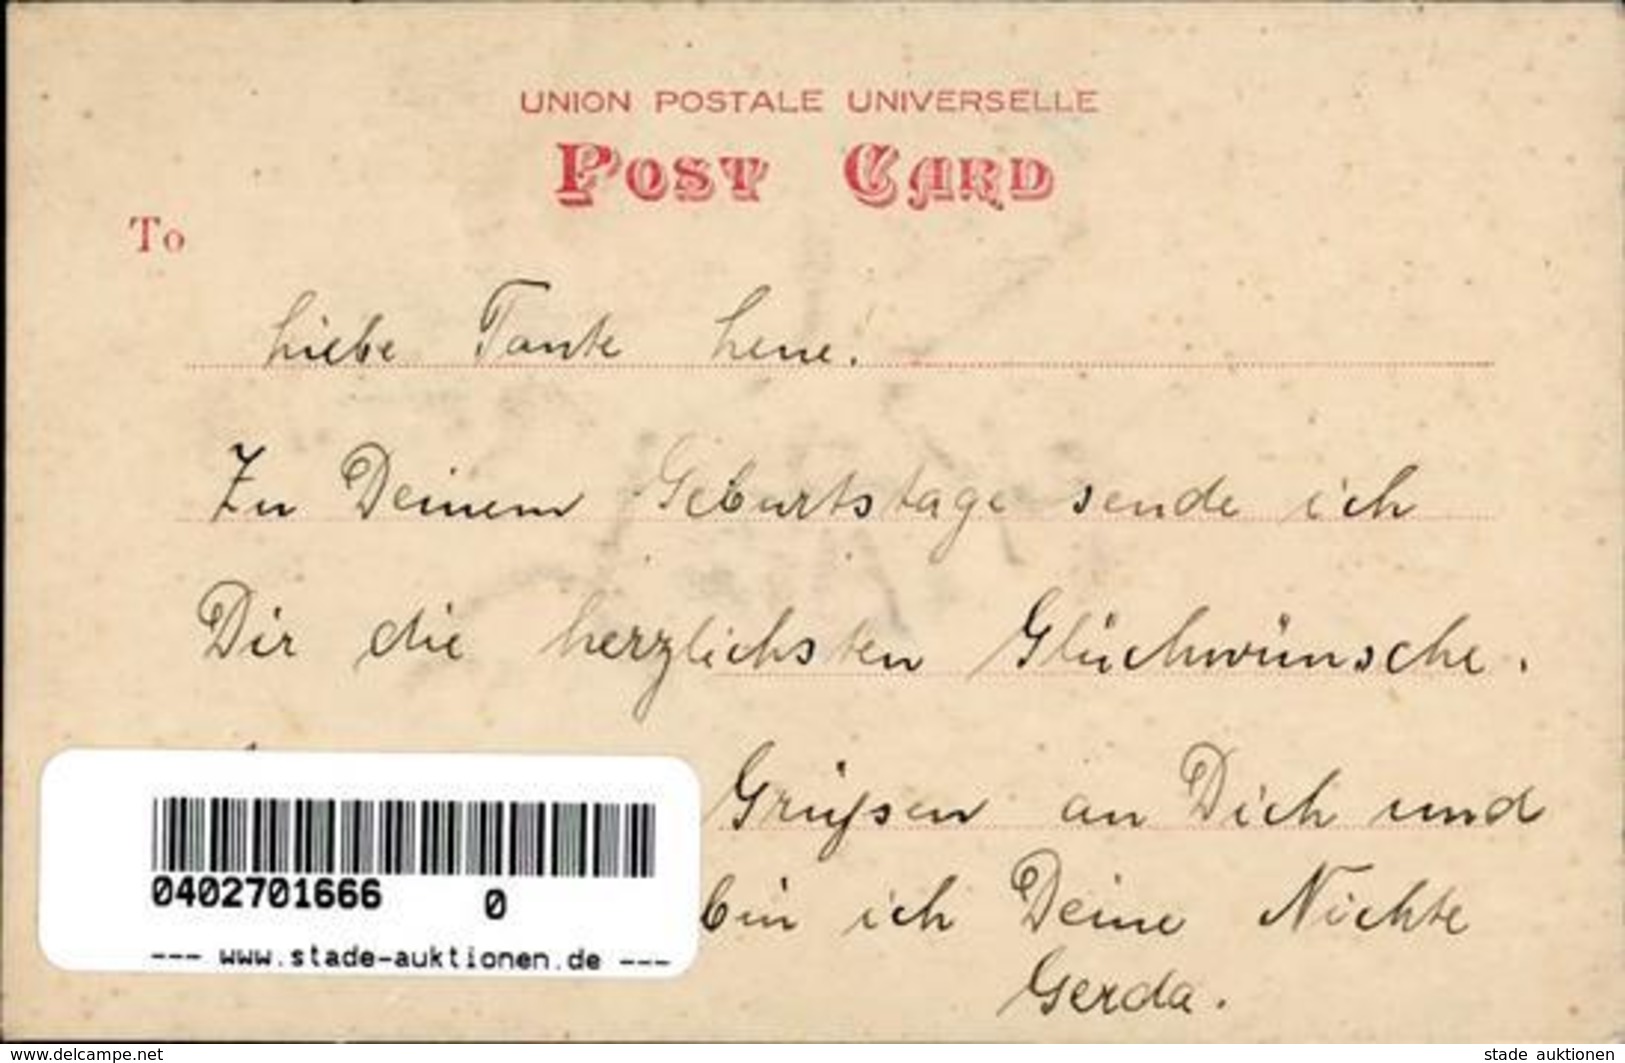 UNION POSTALE UNIVERSELLE
POST CARD
To
Liebe Tante Lene!
Zu Deinem Geburtstage sende ich
Dir die herzlichsten Glückwünsche.
Grüßen an Dich und
bin ich Deine Nichte
Gerda.
0402701666 0
--- www.stade-auktionen.de ---
www.delcampe.net
stade auktionen